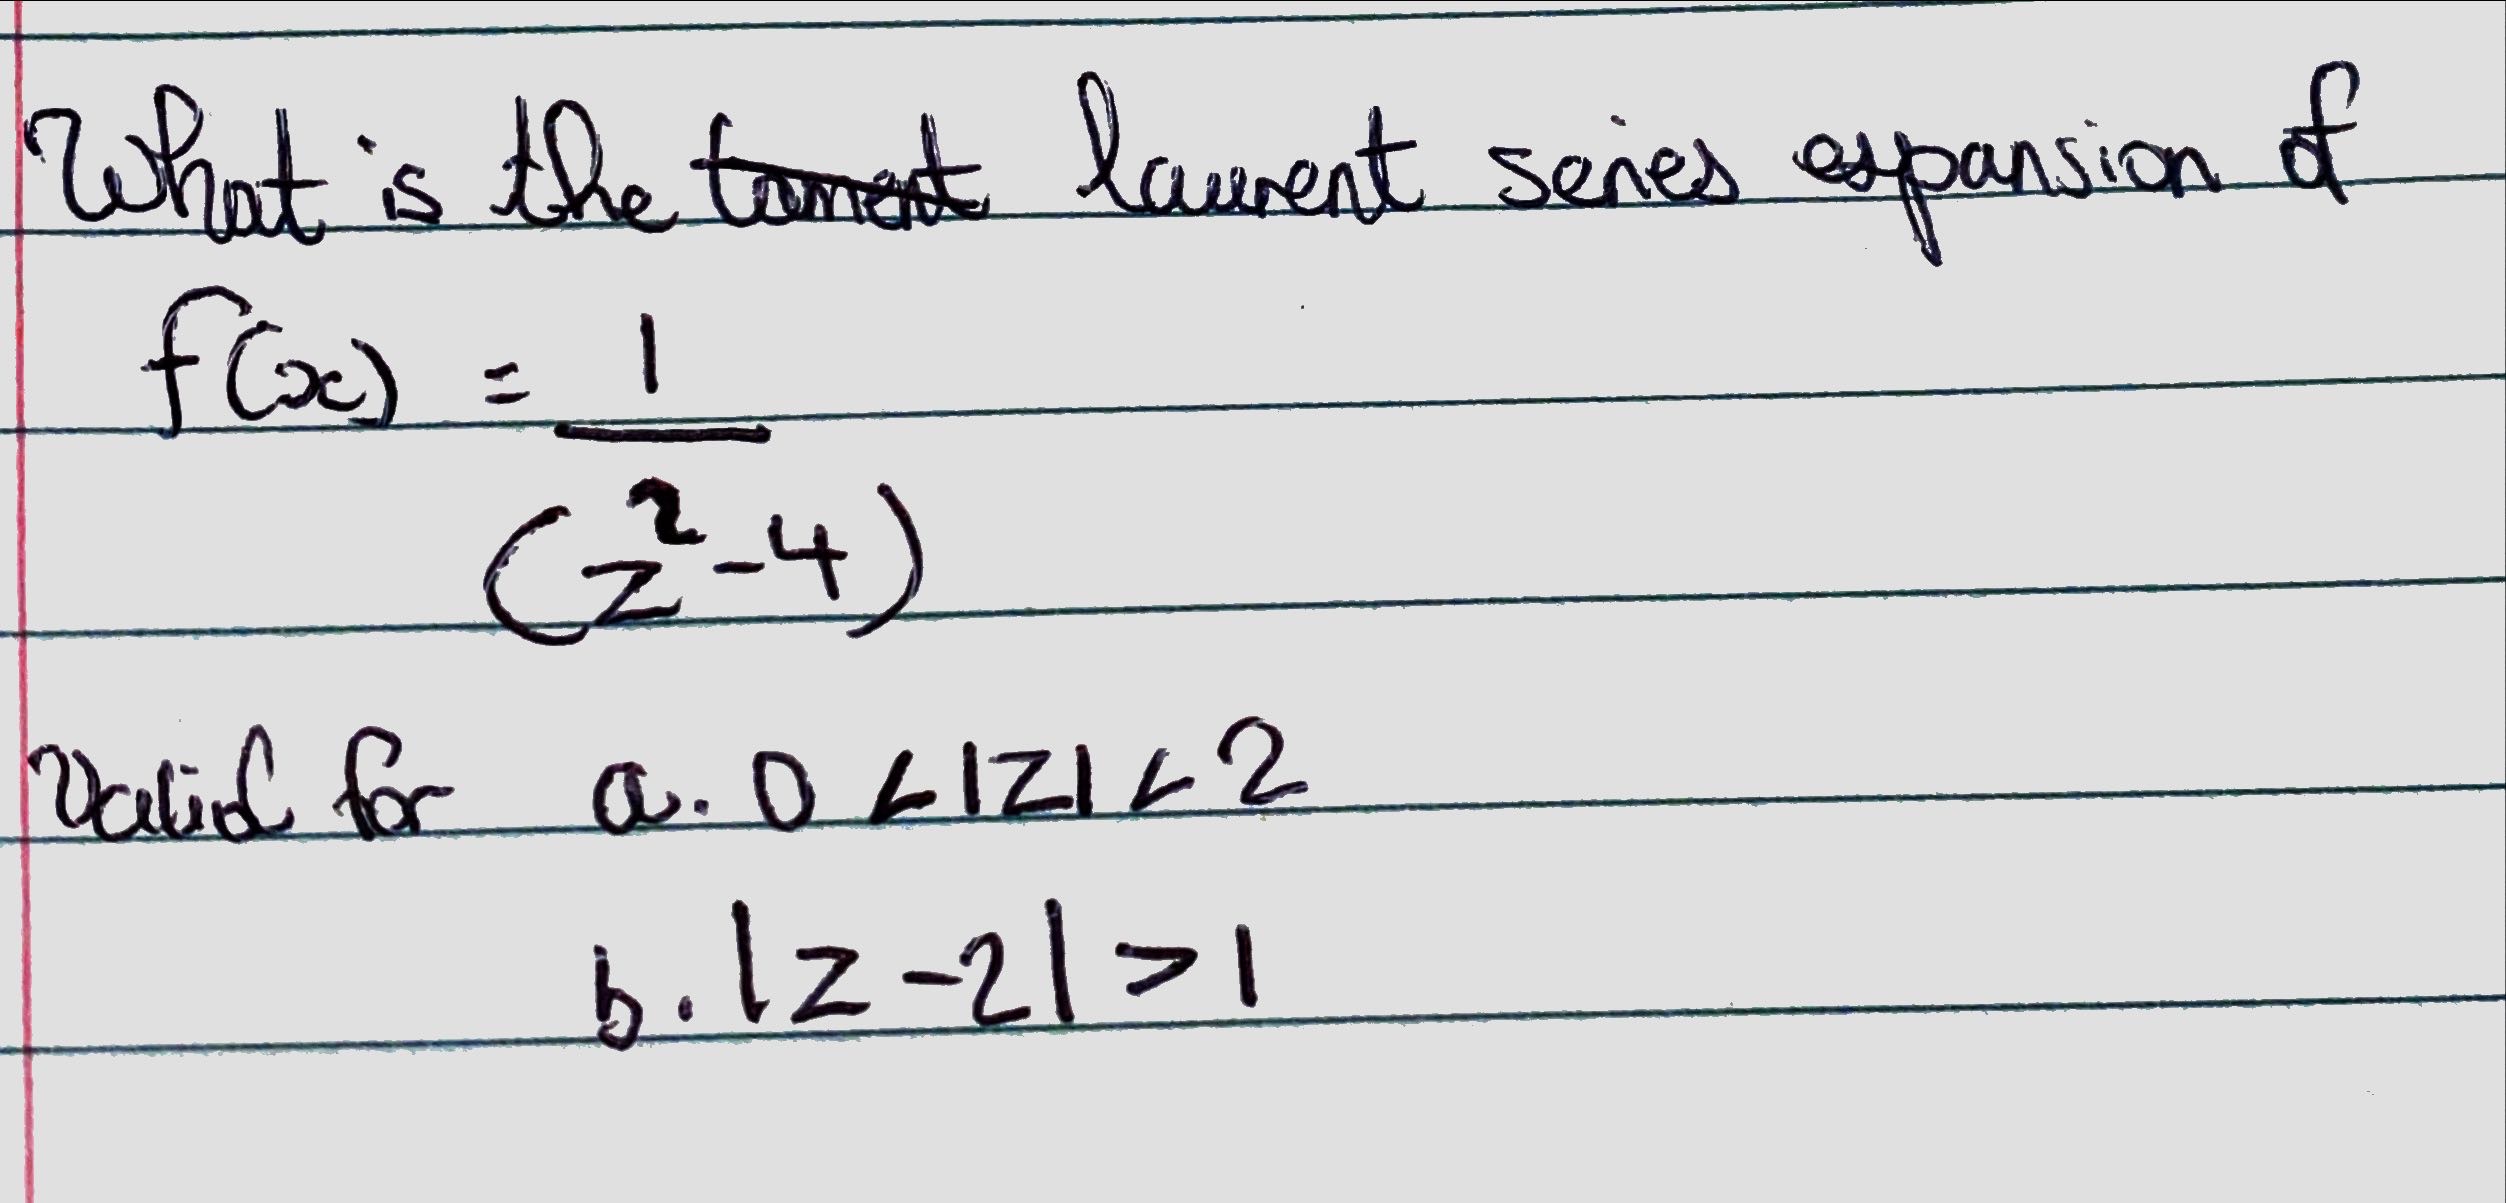 What is the laurent series expansion of
f(x) = 1
(z²-4)
Valid for a. 0 < |z| < 2
b. |z-2| > 1